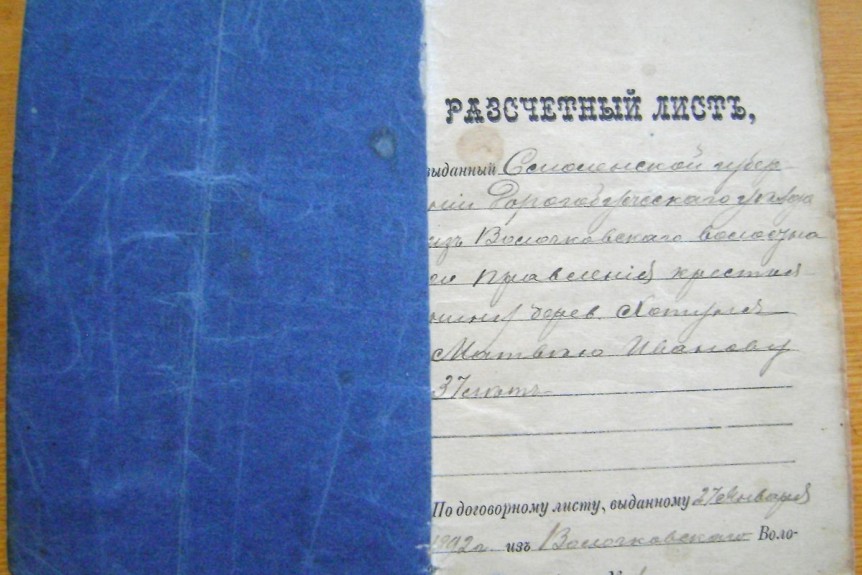 РАЗСЧЕТНЫЙ ЛИСТЪ,
выданный Смоленской губер
ніи Дорогобужскаго уѣзда
изъ Волочковскаго волостна
го Правленія крестья
нину дерев.
Матвѣю Иванову
37 лѣтъ
По договорному листу, выданному 27 Января
г. изъ Волочковскаго Воло-